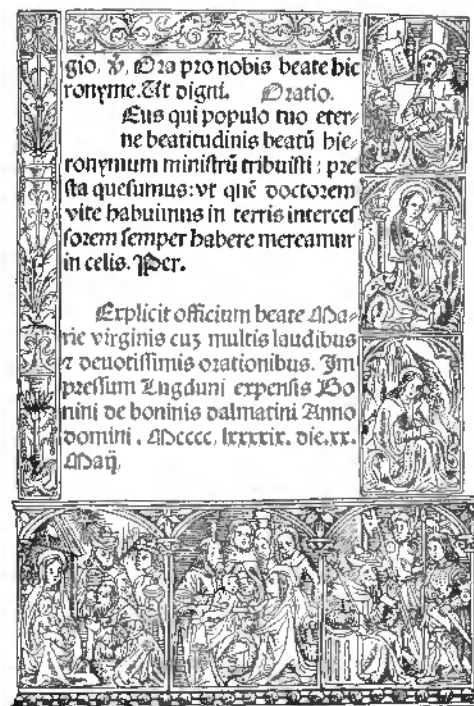 gio. ℣. Ora pro nobis beate hie
ronyme. Ut digni. Oratio.
Eus qui populo tuo eter⸗
ne beatitudinis beatū hie⸗
ronymum ministrū tribuisti: pre
sta quesumus: vt quē doctorem
vite habuimus in terris interces
sorem semper habere mereamur
in celis. Per.
Explicit officium beate Ma⸗
rie virginis cuz multis laudibus
⁊ deuotissimis orationibus. Im
pressum Lugduni expensis Bo
nini de boninis dalmatini Anno
domini. Mcccc. lxxxxix. die. xx.
Maij.